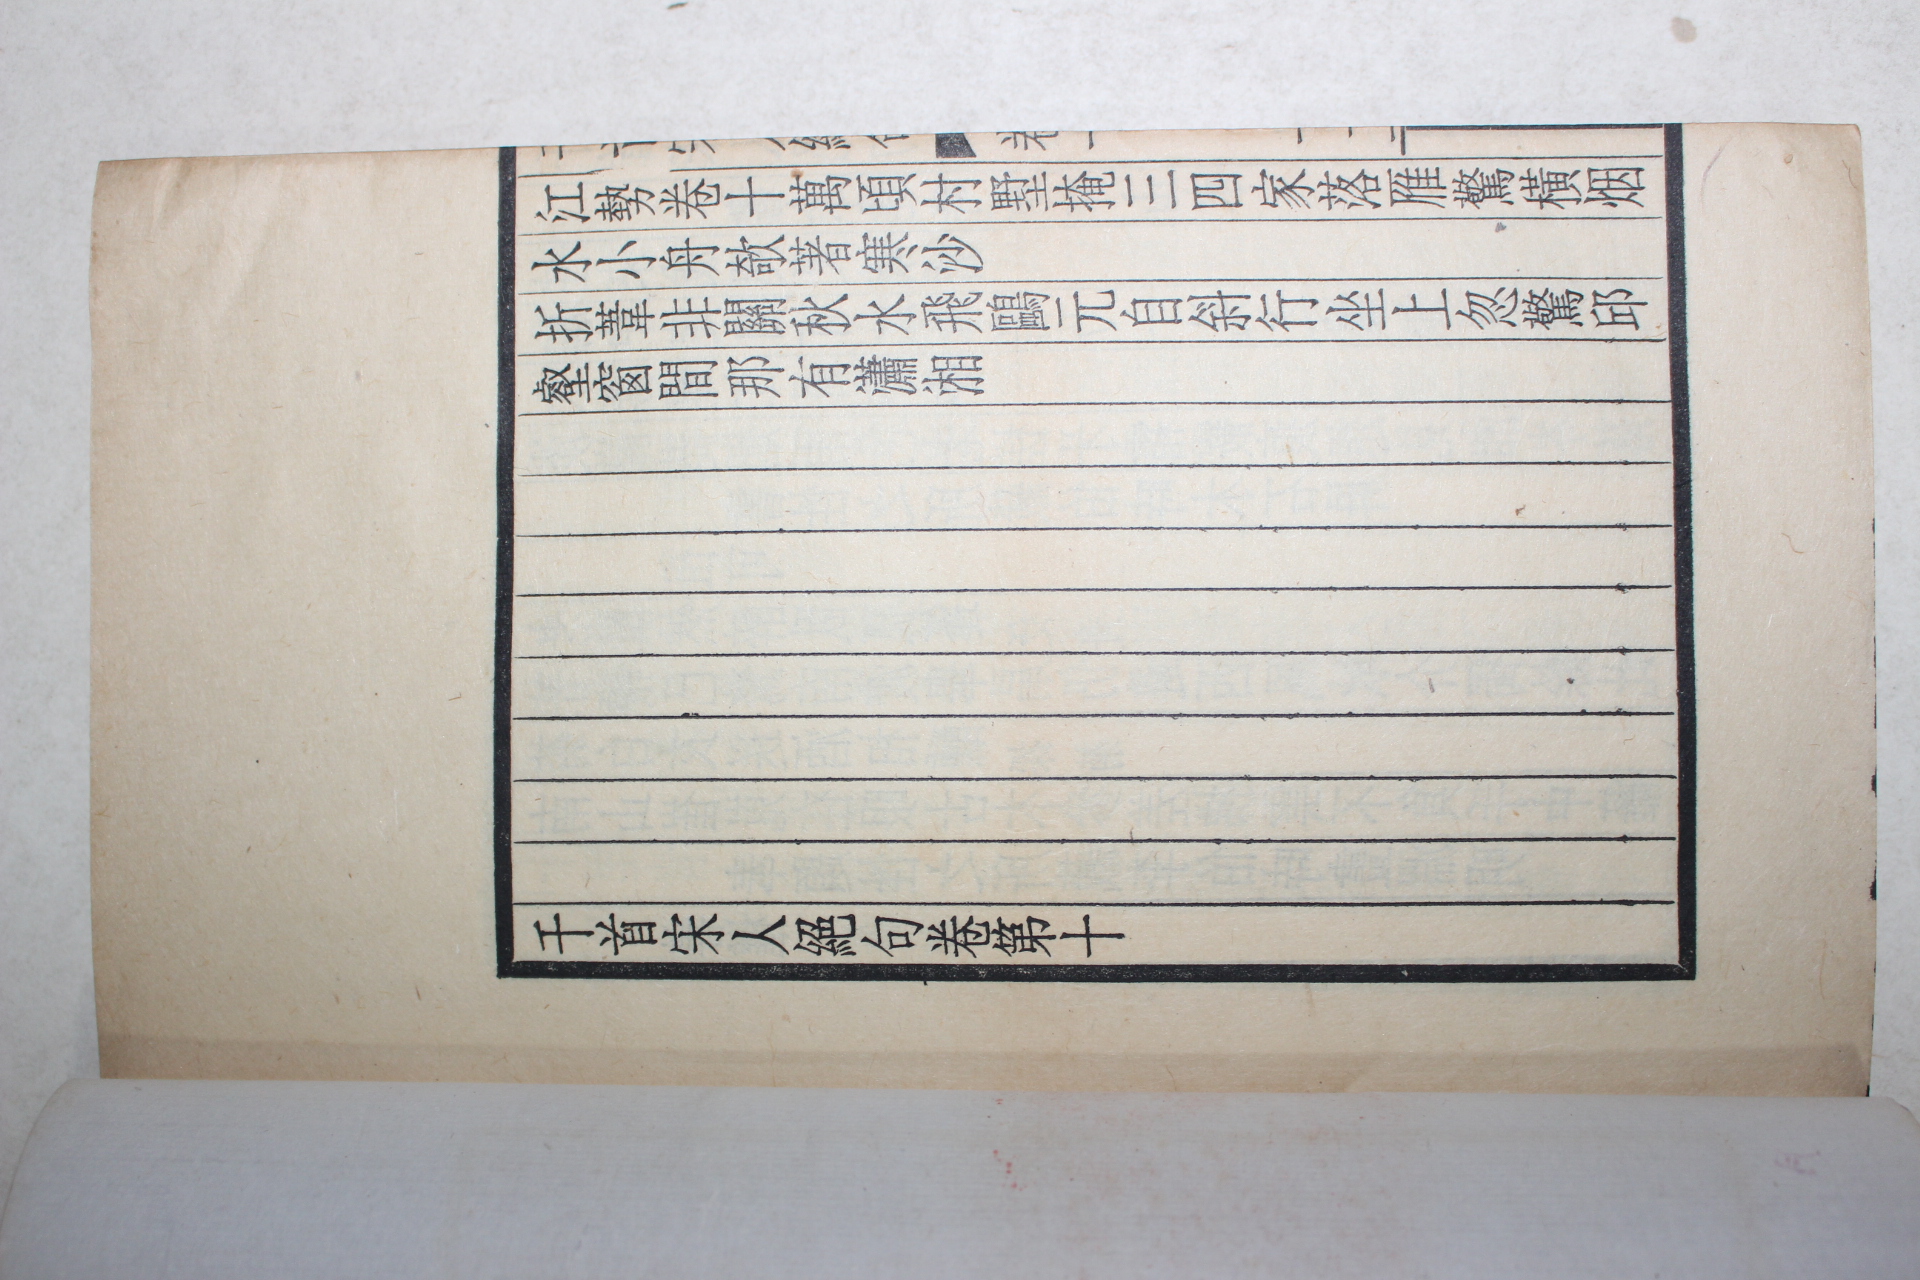 江勢卷十萬頃村墅掩三四家落雁驚橫烟
水小舟欹著寒沙
折葦非關秋水飛鷗元自斜行坐上忽驚邱
壑窗間那有瀟湘
千首宋人絕句卷第十